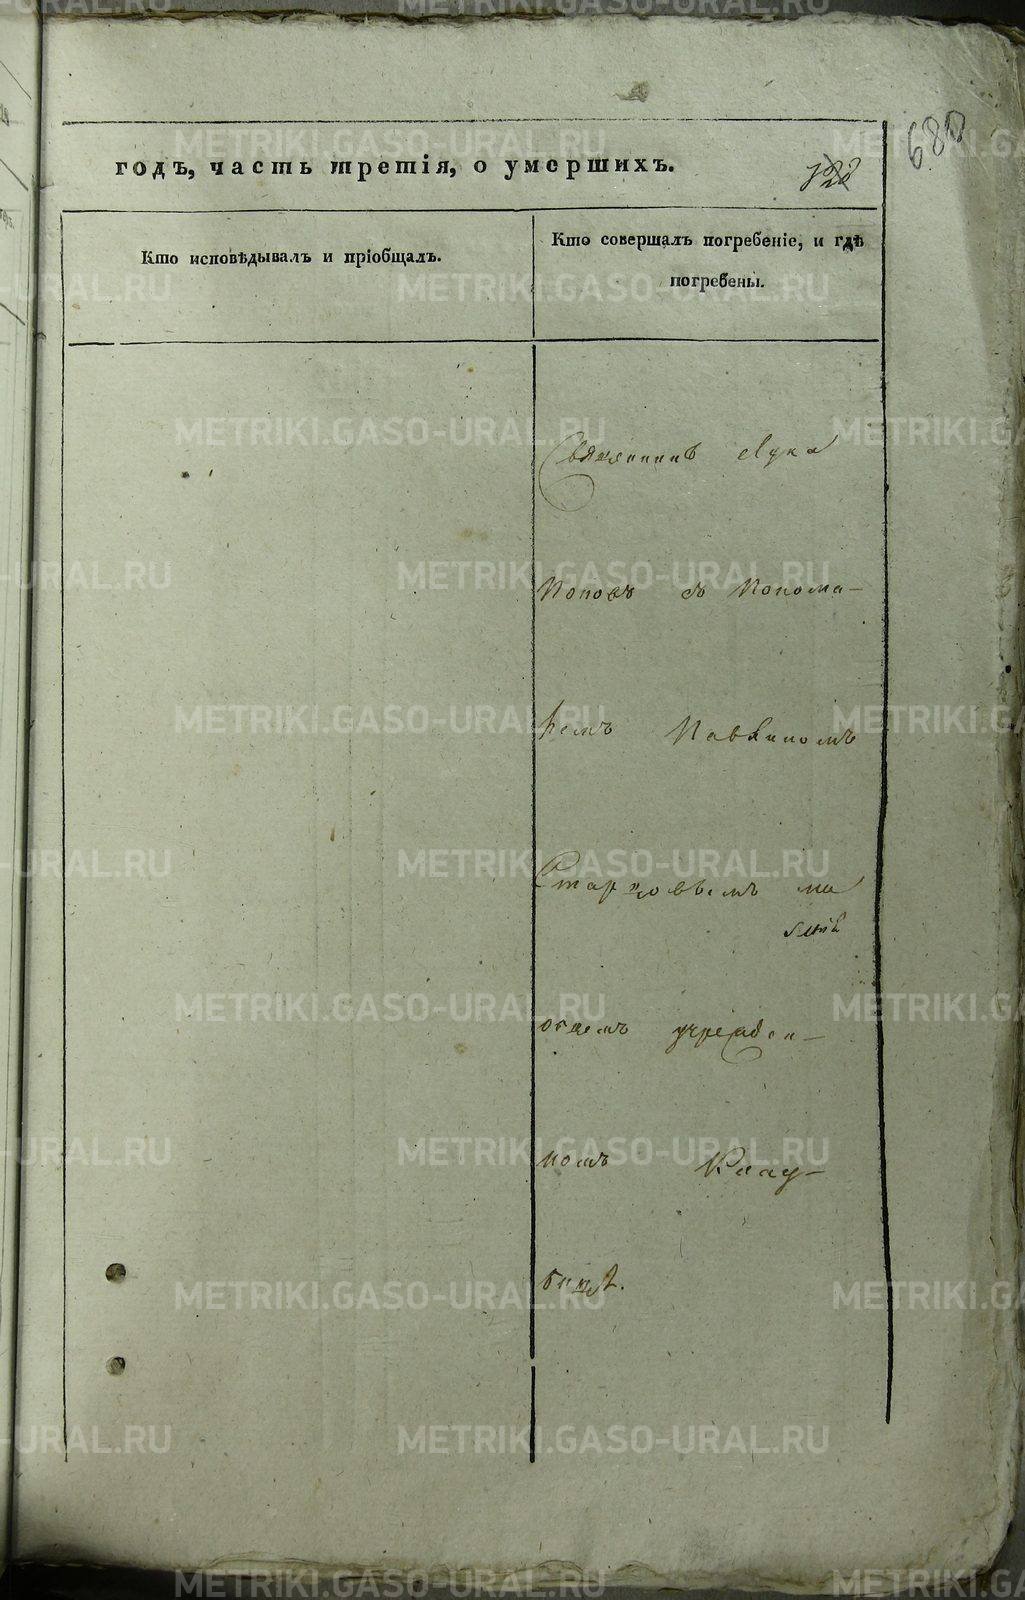 680
годъ, часть третія, о умершихъ.
Кто исповѣдывалъ и пріобщалъ.
Кто совершалъ погребеніе, и гдѣ
погребены.
Священникъ Лука
Поповъ съ Понома-
ремъ Павлиномъ
Старцовымъ на
общемъ учрежден-
номъ Клад-
бищѣ.
METRIKI.GASO-URAL.RU